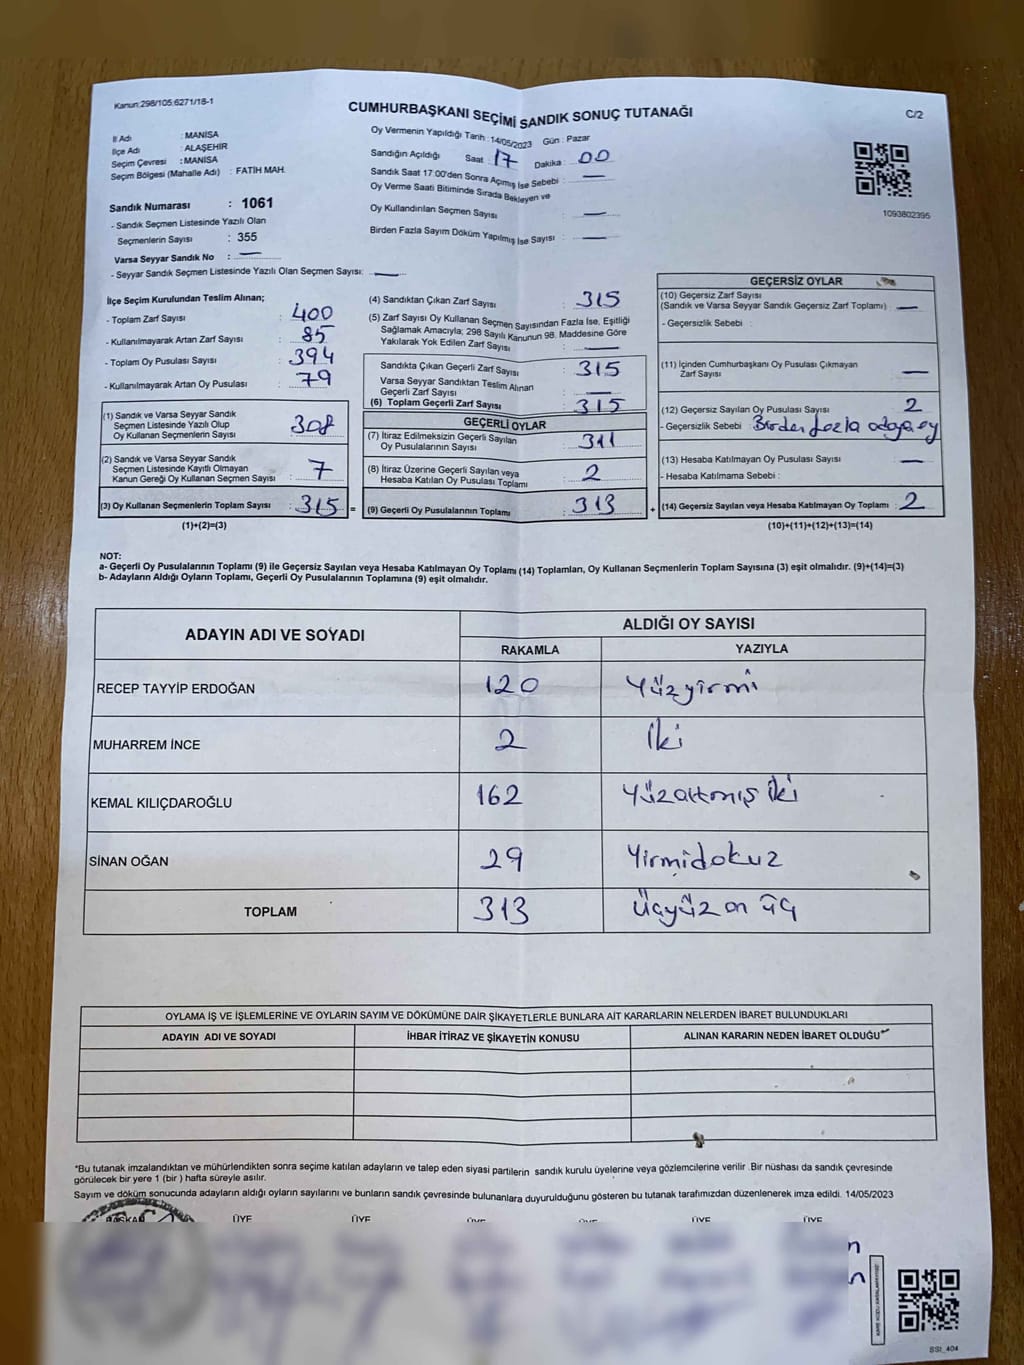 Kanun:298/105;6271/18-1
CUMHURBAŞKANI SEÇİMİ SANDIK SONUÇ TUTANAĞI
C/2
İl Adı : MANİSA
İlçe Adı : ALAŞEHİR
Seçim Çevresi : MANİSA
Seçim Bölgesi (Mahalle Adı) : FATİH MAH.
Oy Vermenin Yapıldığı Tarih : 14/05/2023 Gün : Pazar
Sandığın Açıldığı Saat : 17 Dakika : 00
Sandık Saat 17:00'den Sonra Açımış İse Sebebi : —
Oy Verme Saati Bitiminde Sırada Bekleyen ve
Oy Kullandırılan Seçmen Sayısı : —
Birden Fazla Sayım Döküm Yapılmış İse Sayısı : —
1093802395
Sandık Numarası : 1061
- Sandık Seçmen Listesinde Yazılı Olan
Seçmenlerin Sayısı : 355
Varsa Seyyar Sandık No : —
- Seyyar Sandık Seçmen Listesinde Yazılı Olan Seçmen Sayısı: —
İlçe Seçim Kurulundan Teslim Alınan;
- Toplam Zarf Sayısı : 400
- Kullanılmayarak Artan Zarf Sayısı : 85
- Toplam Oy Pusulası Sayısı : 394
- Kullanılmayarak Artan Oy Pusulası : 79
(1) Sandık ve Varsa Seyyar Sandık
Seçmen Listesinde Yazılı Olup
Oy Kullanan Seçmenlerin Sayısı : 308
(2) Sandık ve Varsa Seyyar Sandık
Seçmen Listesinde Kayıtlı Olmayan
Kanun Gereği Oy Kullanan Seçmen Sayısı : 7
(3) Oy Kullanan Seçmenlerin Toplam Sayısı : 315 =
(1)+(2)=(3)
(4) Sandıktan Çıkan Zarf Sayısı : 315
(5) Zarf Sayısı Oy Kullanan Seçmen Sayısından Fazla İse, Eşitliği
Sağlamak Amacıyla; 298 Sayılı Kanunun 98. Maddesine Göre
Yakılarak Yok Edilen Zarf Sayısı : —
Sandıkta Çıkan Geçerli Zarf Sayısı : 315
Varsa Seyyar Sandıktan Teslim Alınan
Geçerli Zarf Sayısı : —
(6) Toplam Geçerli Zarf Sayısı : 315
GEÇERLİ OYLAR
(7) İtiraz Edilmeksizin Geçerli Sayılan
Oy Pusulalarının Sayısı : 311
(8) İtiraz Üzerine Geçerli Sayılan veya
Hesaba Katılan Oy Pusulası Toplamı : 2
(9) Geçerli Oy Pusulalarının Toplamı : 313 +
GEÇERSİZ OYLAR
(10) Geçersiz Zarf Sayısı
(Sandık ve Varsa Seyyar Sandık Geçersiz Zarf Toplamı) : —
- Geçersizlik Sebebi :
(11) İçinden Cumhurbaşkanı Oy Pusulası Çıkmayan
Zarf Sayısı : —
(12) Geçersiz Sayılan Oy Pusulası Sayısı : 2
- Geçersizlik Sebebi : Birden fazla adaya oy
(13) Hesaba Katılmayan Oy Pusulası Sayısı : —
- Hesaba Katılmama Sebebi :
(14) Geçersiz Sayılan veya Hesaba Katılmayan Oy Toplamı : 2
(10)+(11)+(12)+(13)=(14)
NOT:
a- Geçerli Oy Pusulalarının Toplamı (9) ile Geçersiz Sayılan veya Hesaba Katılmayan Oy Toplamı (14) Toplamları, Oy Kullanan Seçmenlerin Toplam Sayısına (3) eşit olmalıdır. (9)+(14)=(3)
b- Adayların Aldığı Oyların Toplamı, Geçerli Oy Pusulalarının Toplamına (9) eşit olmalıdır.
ADAYIN ADI VE SOYADI
ALDIĞI OY SAYISI
RAKAMLA YAZIYLA
RECEP TAYYİP ERDOĞAN 120 Yüzyirmi
MUHARREM İNCE 2 İki
KEMAL KILIÇDAROĞLU 162 Yüzaltmış iki
SİNAN OĞAN 29 Yirmidokuz
TOPLAM 313 Üçyüz on üç
OYLAMA İŞ VE İŞLEMLERİNE VE OYLARIN SAYIM VE DÖKÜMÜNE DAİR ŞİKAYETLERLE BUNLARA AİT KARARLARIN NELERDEN İBARET BULUNDUKLARI
ADAYIN ADI VE SOYADI İHBAR İTİRAZ VE ŞİKAYETİN KONUSU ALINAN KARARIN NEDEN İBARET OLDUĞU
*Bu tutanak imzalandıktan ve mühürlendikten sonra seçime katılan adayların ve talep eden siyasi partilerin sandık kurulu üyelerine veya gözlemcilerine verilir .Bir nüshası da sandık çevresinde
görülecek bir yere 1 (bir ) hafta süreyle asılır.
Sayım ve döküm sonucunda adayların aldığı oyların sayılarını ve bunların sandık çevresinde bulunanlara duyurulduğunu gösteren bu tutanak tarafımızdan düzenlenerek imza edildi. 14/05/2023
BAŞKAN ÜYE ÜYE ÜYE ÜYE ÜYE ÜYE
SSI_404